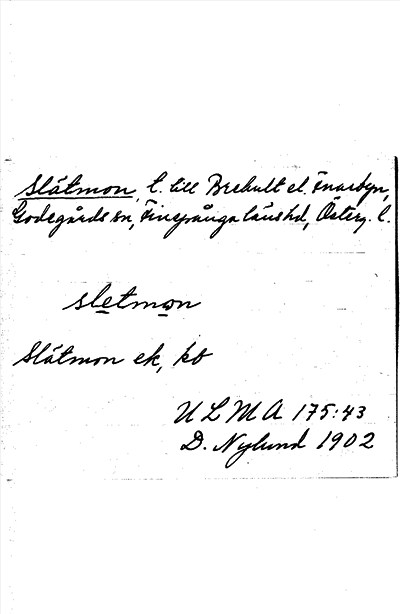 Slätmon, t. till Brehult el. Finarbyn,
Godegårds sn, Finspånga läns hd, Österg. l.
sletmon
Slätmon ek, kb
ULMA 175:43
D. Nylund 1902